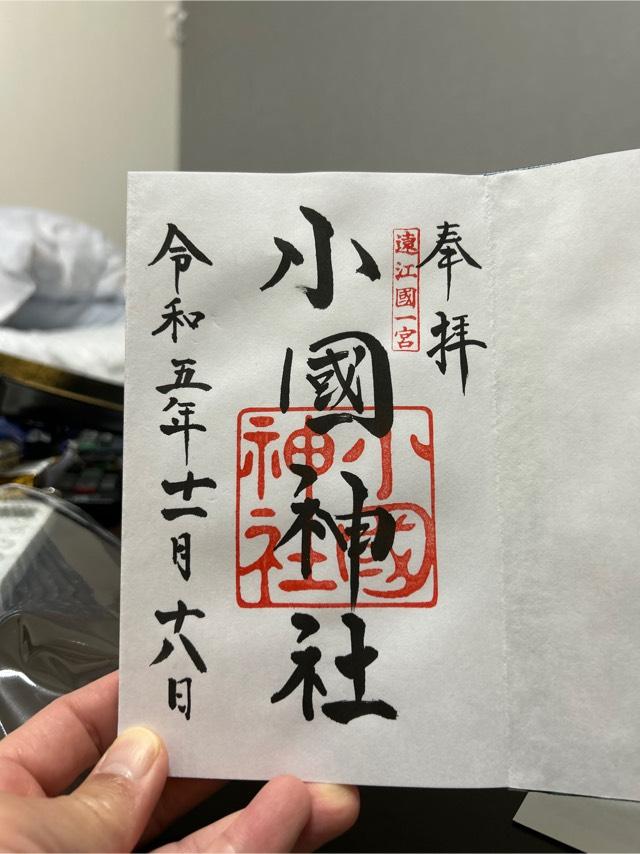 奉拝
遠江國一宮
小國神社
小國神社
令和五年十一月十八日